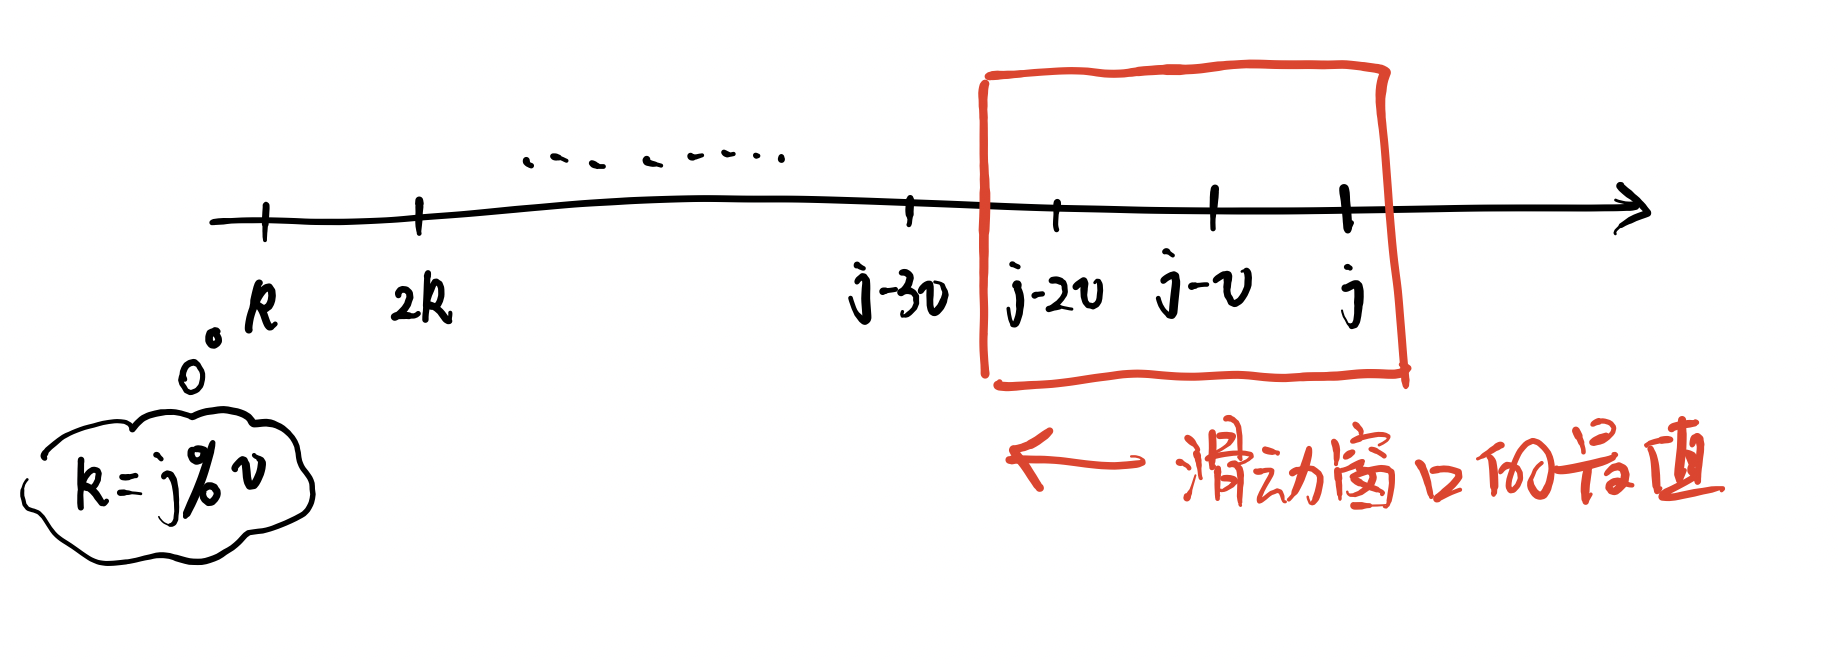 ........
k 2k j-3v j-2v j-v j
k=j%v
← 滑动窗口的最值